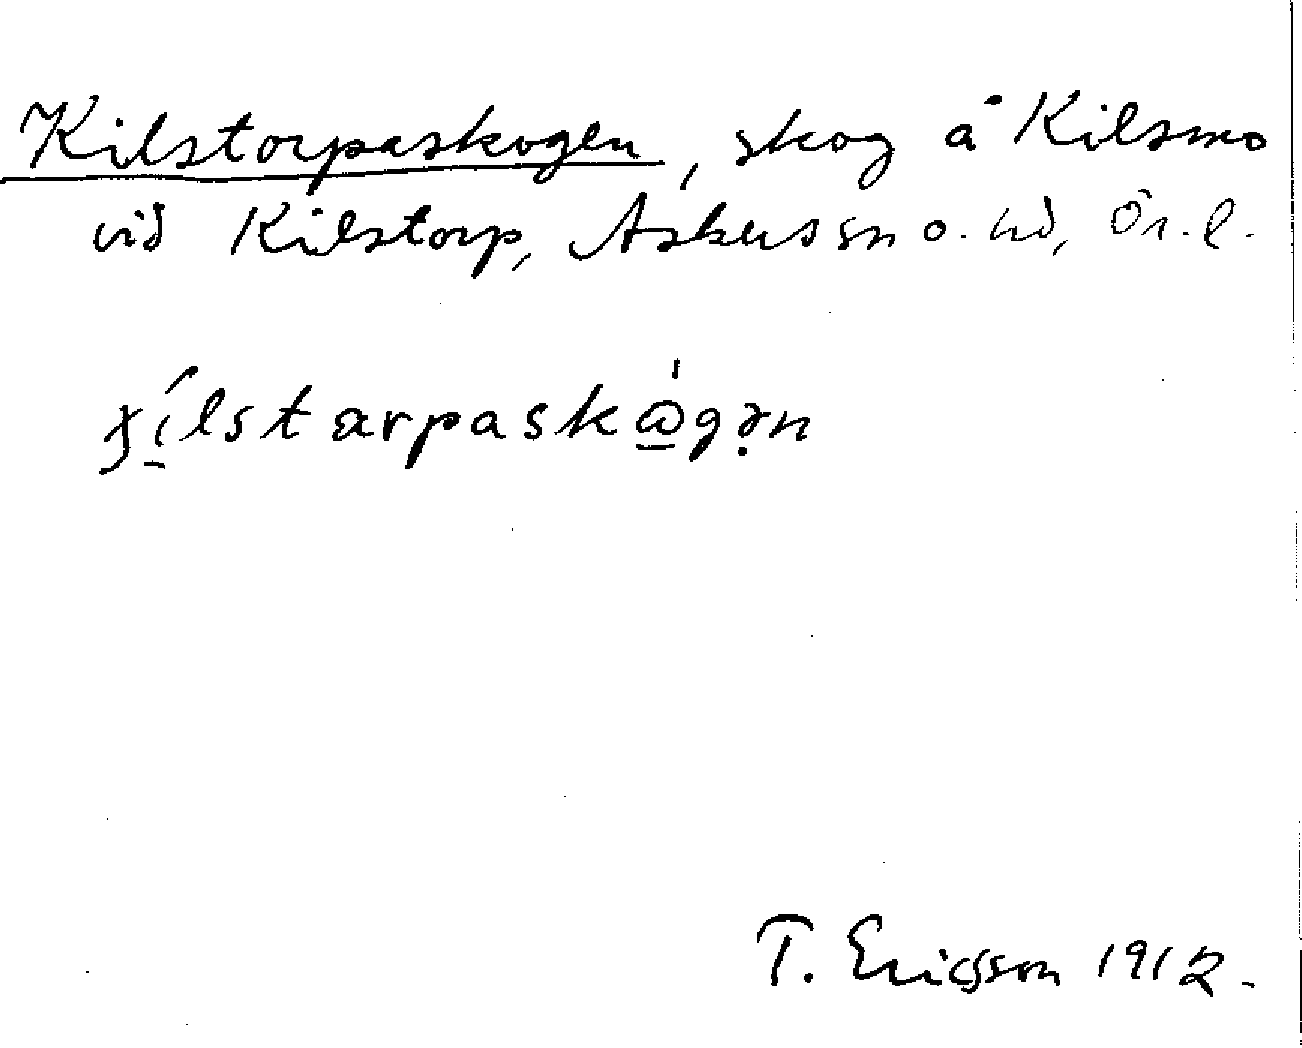 Kilstorpaskogen, skog å Kilsmo
vid Kilstorp, Askers sn o. hd, Ör. l.
ɟí̠lstarpaskὼ̠gə̣n
T. Ericsson 1912.